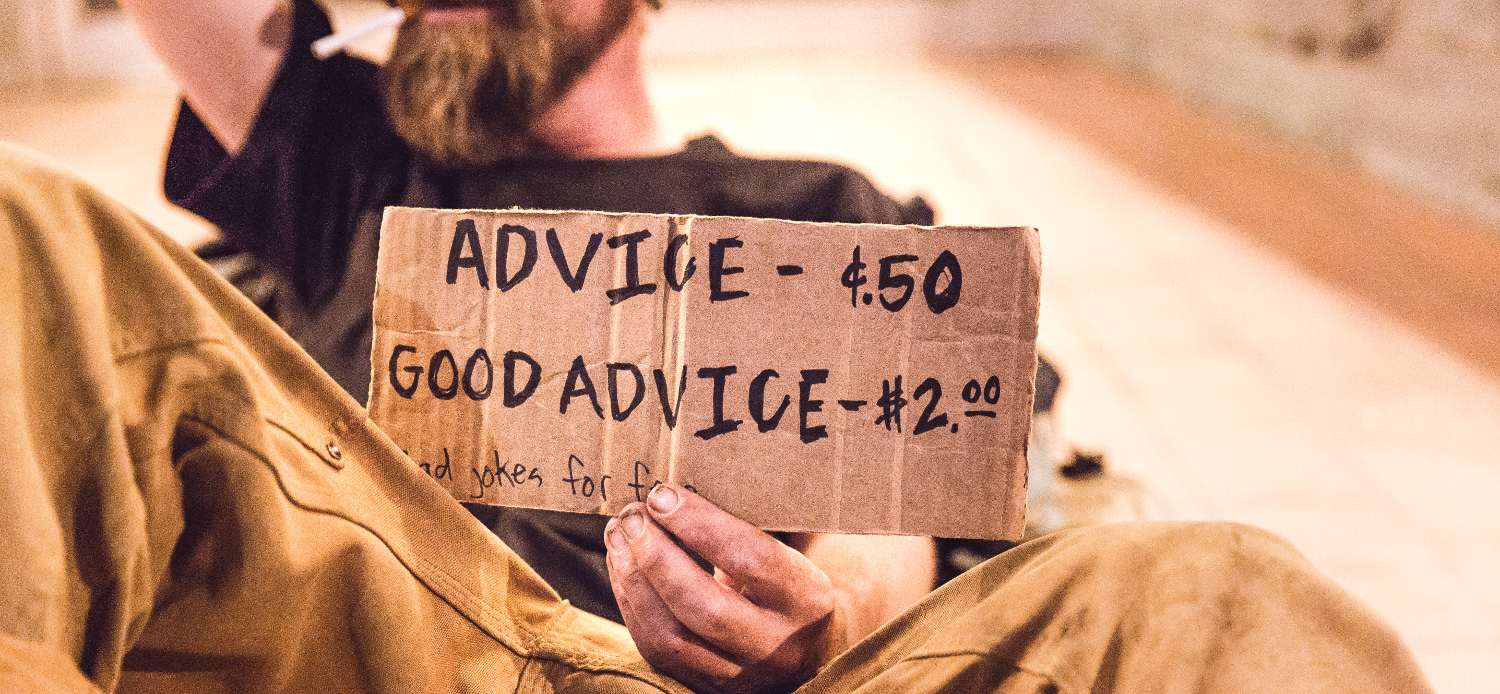 ADVICE - ¢.50
GOOD ADVICE - #2.00
jokes for